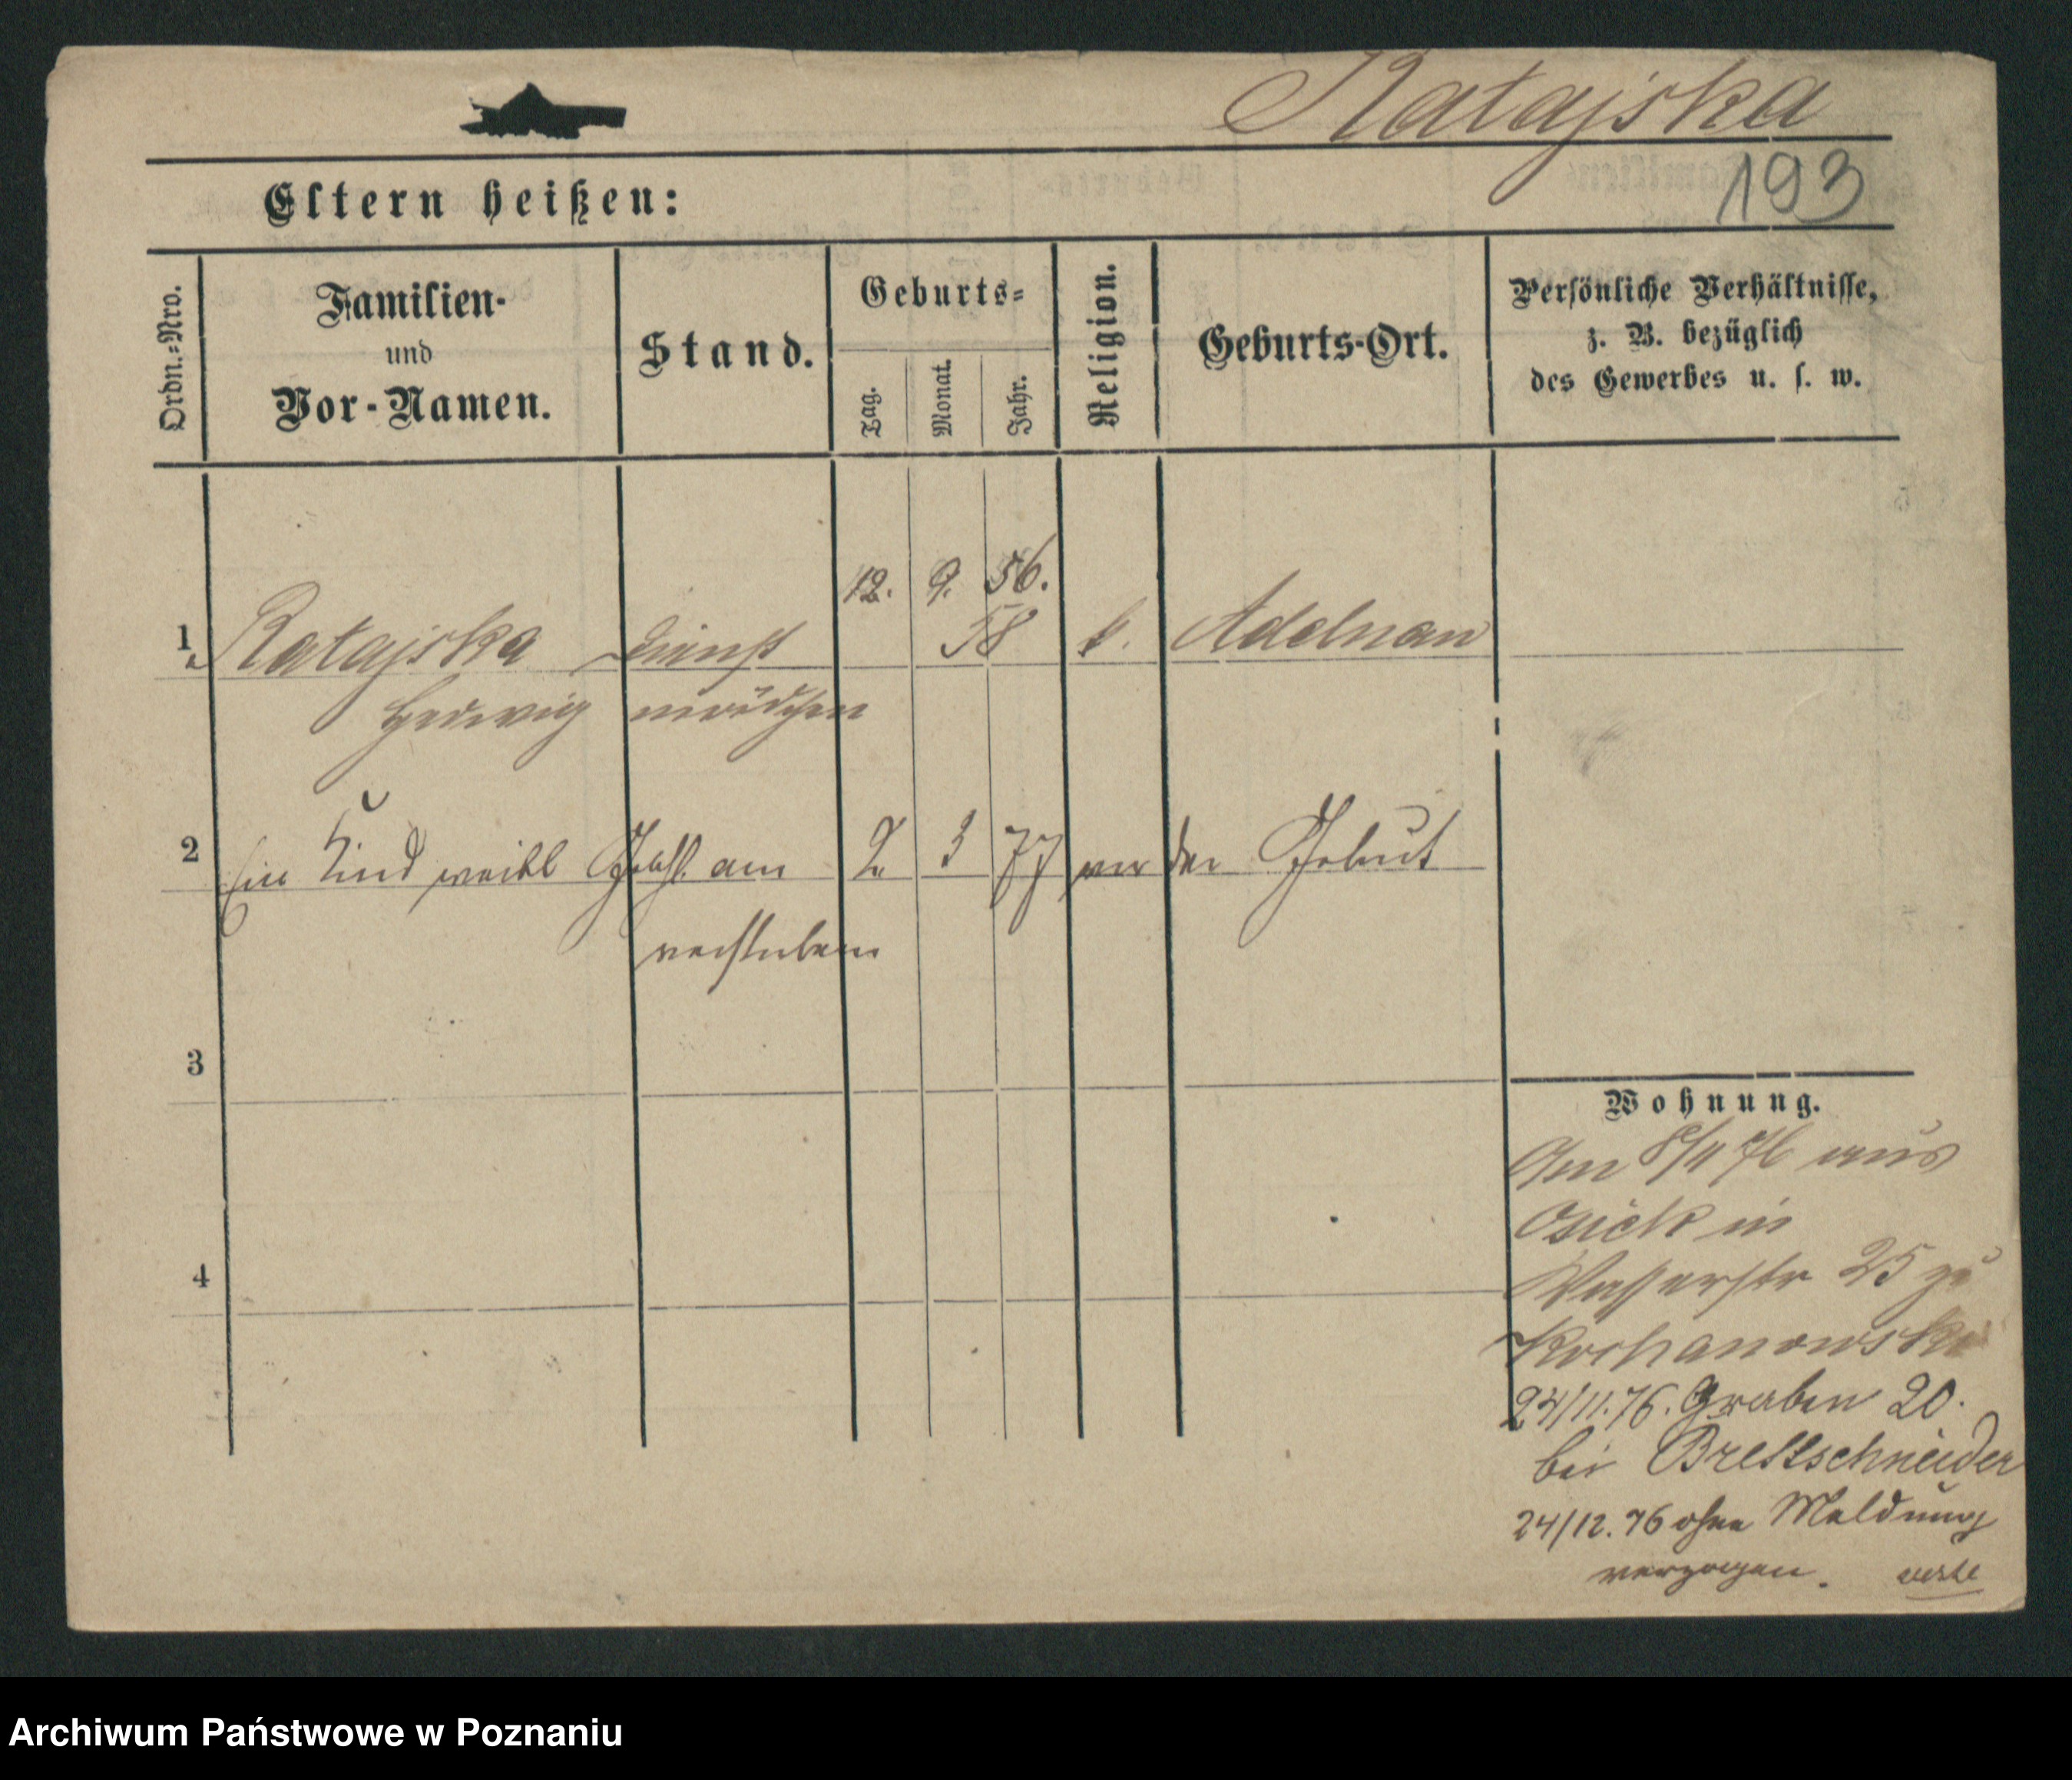 Ratajska
193
Eltern heißen:
Ordn.-Nro.
Familien-
und
Vor-Namen.
Stand.
Geburts-
Tag.
Monat.
Jahr.
Religion.
Geburts-Ort.
Persönliche Verhältnisse,
z. B. bezüglich
des Gewerbes u. s. w.
12. 9. 56.
1. Ratajska Dienst 58 k. Adelnau
Hedwig mädchen
2 Ein Kind weibl Geschl. am 2. 3 77 vor der Geburt
verstorben
3
4
Wohnung.
Am 8/11 76 aus
Osiek in
Wasserstr 25 zu
Kochanowski
24/11. 76. Graben 20.
bei Brettschneider
24/12. 76 ohne Meldung
verzogen.
Archiwum Państwowe w Poznaniu